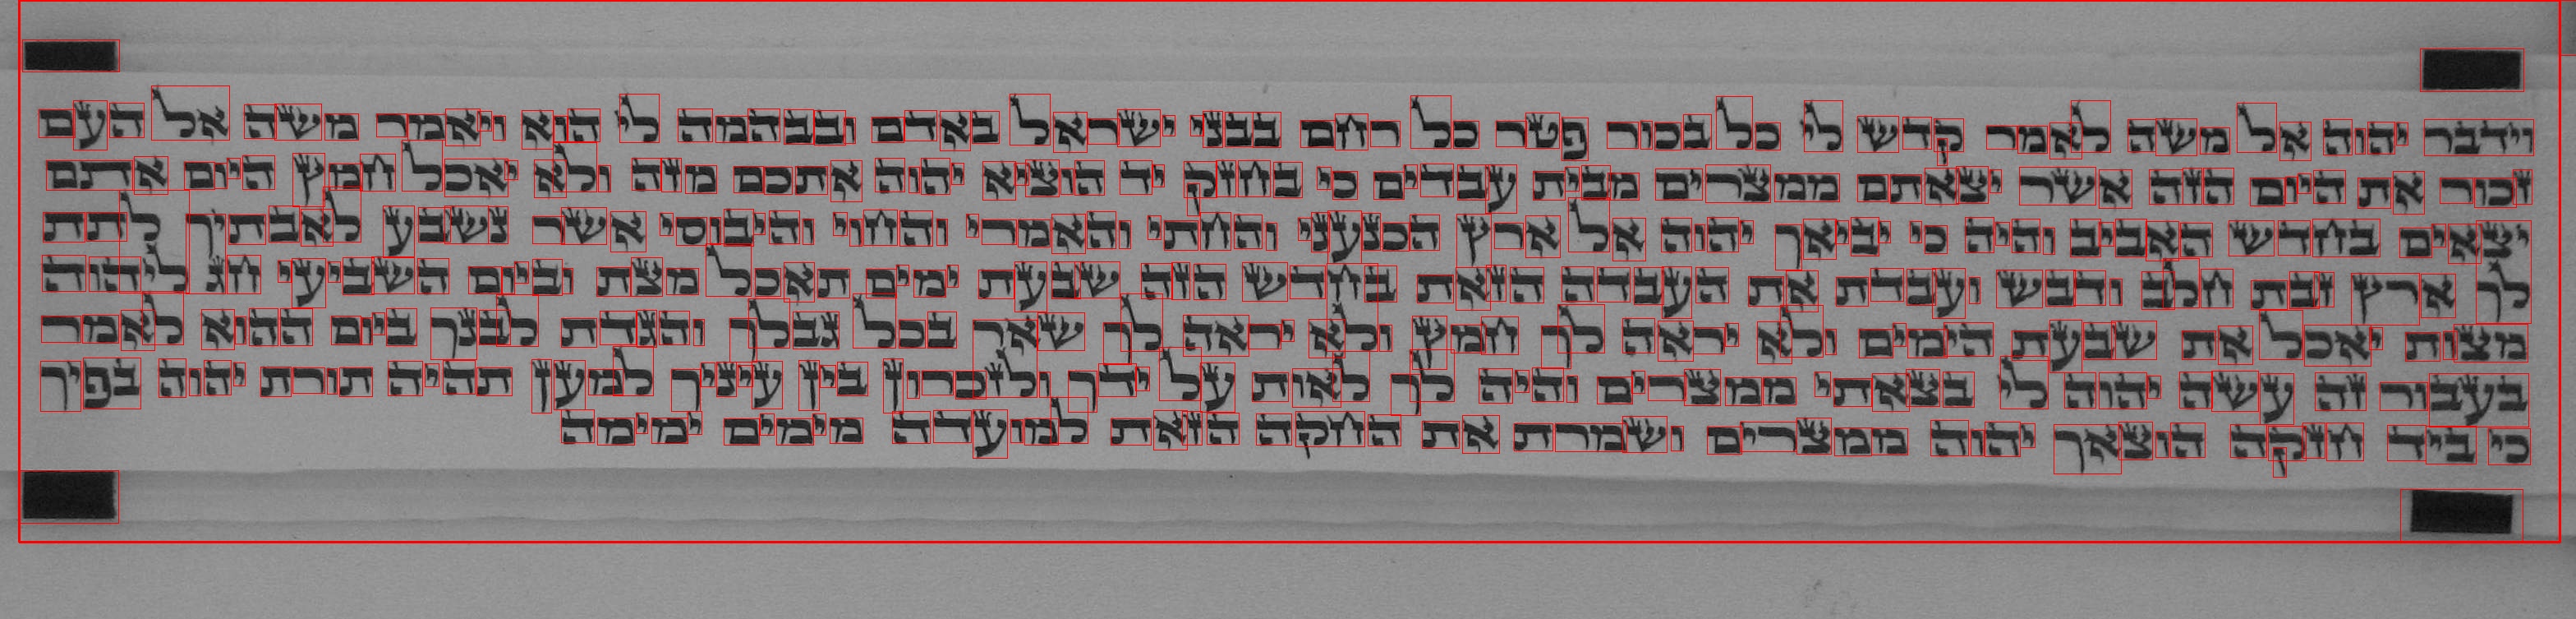 וידבר יהוה אל משה לאמר קדש לי כל בכור פטר כל רחם בבני ישראל באדם ובבהמה לי הוא ויאמר משה אל העם
זכור את היום הזה אשר יצאתם ממצרים מבית עבדים כי בחזק יד הוציא יהוה אתכם מזה ולא יאכל חמץ היום אתם
יצאים בחדש האביב והיה כי יביאך יהוה אל ארץ הכנעני והחתי והאמרי והחוי והיבוסי אשר נשבע לאבתיך לתת
לך ארץ זבת חלב ודבש ועבדת את העבדה הזאת בחדש הזה שבעת ימים תאכל מצת וביום השביעי חג ליהוה
מצות יאכל את שבעת הימים ולא יראה לך חמץ ולא יראה לך שאר בכל גבלך והגדת לבנך ביום ההוא לאמר
בעבור זה עשה יהוה לי בצאתי ממצרים והיה לך לאות על ידך ולזכרון בין עיניך למען תהיה תורת יהוה בפיך
כי ביד חזקה הוצאך יהוה ממצרים ושמרת את החקה הזאת למועדה מימים ימימה